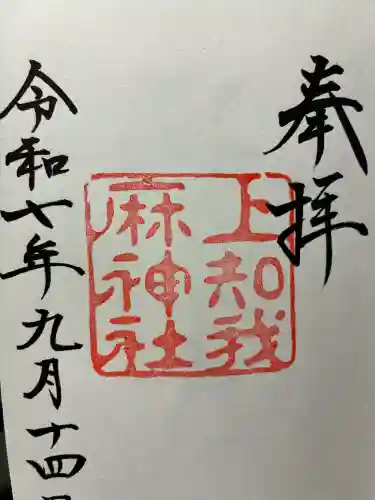 奉拝
上知我
麻神社
令和七年九月十四日